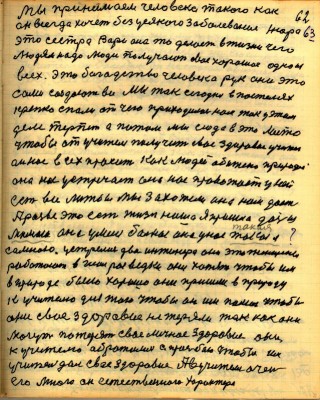 62
Мы принимаем человека такого как
он всегда хочет без всякого заболевания жара 63
это сестра Варя она то делает в жизни чего
людям надо люди получают благо хорошее одно и
всех. Это богатство человека рук оно это
само создало ве мы так сегодня в постелях
крепко спали от чего приходилося нам так у этом
деле терпеть а потом мы сюда в это место
чтобы от учителя получить свое здоровье учитель
он нас всех просит как людей обо это природе
она нас устречает она нас провожает у вой
сет ве Литвы мы захотели она нам дает
А разве это сет жизя наша я пришла дочь
Мамина она у меня больная она у нас такая ?
самого. устретил два инженера они это инженера
работают в них разведка они хотят чтобы им
в природе было хорошо они пришли в природу
к учителю для того чтобы он им помог чтобы
они свое здоровье не теряли так как они
могут потерять свое личное здоровье они,
к учителю обратились с просьбой чтобы им
учитель дал свое здоровье А учитель очен
его много он естественного характера